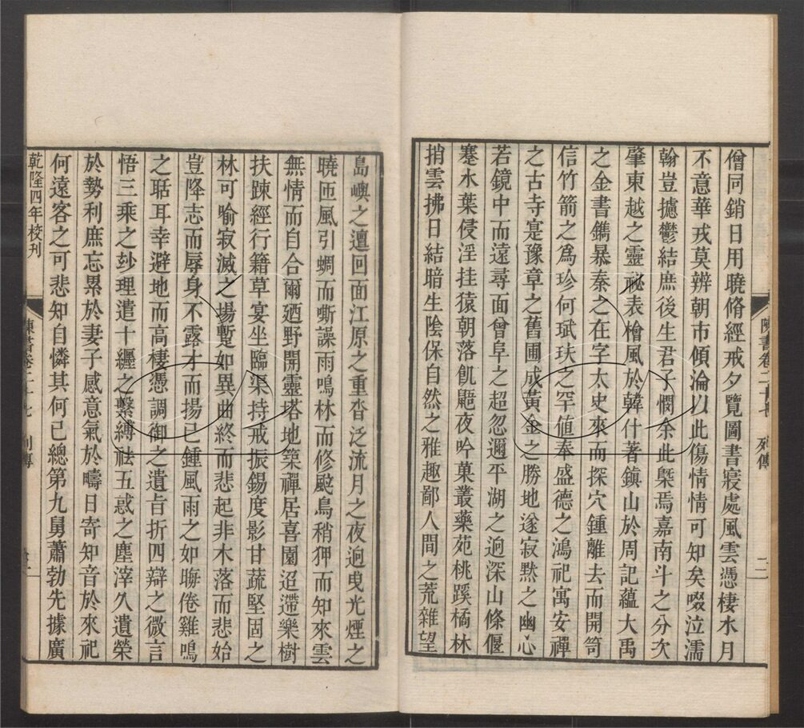 僧同銷日用曉脩經戒夕覽圖書寢處風雲憑棲水月
不意華戎莫辨朝市傾淪以此傷情情可知矣啜泣濡
翰豈攄鬱結庶後生君子憫余此槩焉嘉南斗之分次
肇東越之靈祕表檜風於韓什著鎮山於周記蘊大禹
之金書鐫暴秦之在字太史來而探穴鍾離去而開笥
信竹箭之爲珍何珷玞之罕値奉盛德之鴻祀寓安禪
之古寺寔豫章之舊圃成黃金之勝地遂寂默之幽心
若鏡中而遠尋面曾阜之超忽邇平湖之迥深山條偃
蹇水葉侵淫挂猿朝落飢鼯夜吟菓叢藥苑桃蹊橘林
捎雲拂日結暗生陰保自然之雅趣鄙人間之荒雜望
島嶼之邅回面江原之重沓泛流月之夜迥曳光煙之
曉匝風引蜩而嘶譟雨鳴林而修颭鳥稍狎而知來雲
無情而自合爾廼野開靈塔地築禪居喜園迢遰樂樹
扶踈經行籍草宴坐臨渠持戒振錫度影甘蔬堅固之
林可喻寂滅之場蹔如異曲終而悲起非木落而悲始
豈降志而辱身不露才而揚已鍾風雨之如晦倦雞鳴
之聒耳幸避地而高棲憑調御之遺旨折四辯之微言
悟三乘之玅理遣十纒之繫縛祛五惑之塵滓久遺榮
於勢利庶忘累於妻子感意氣於疇日寄知音於來祀
何遠客之可悲知自憐其何已總第九舅蕭勃先據廣
乾隆四年校刊